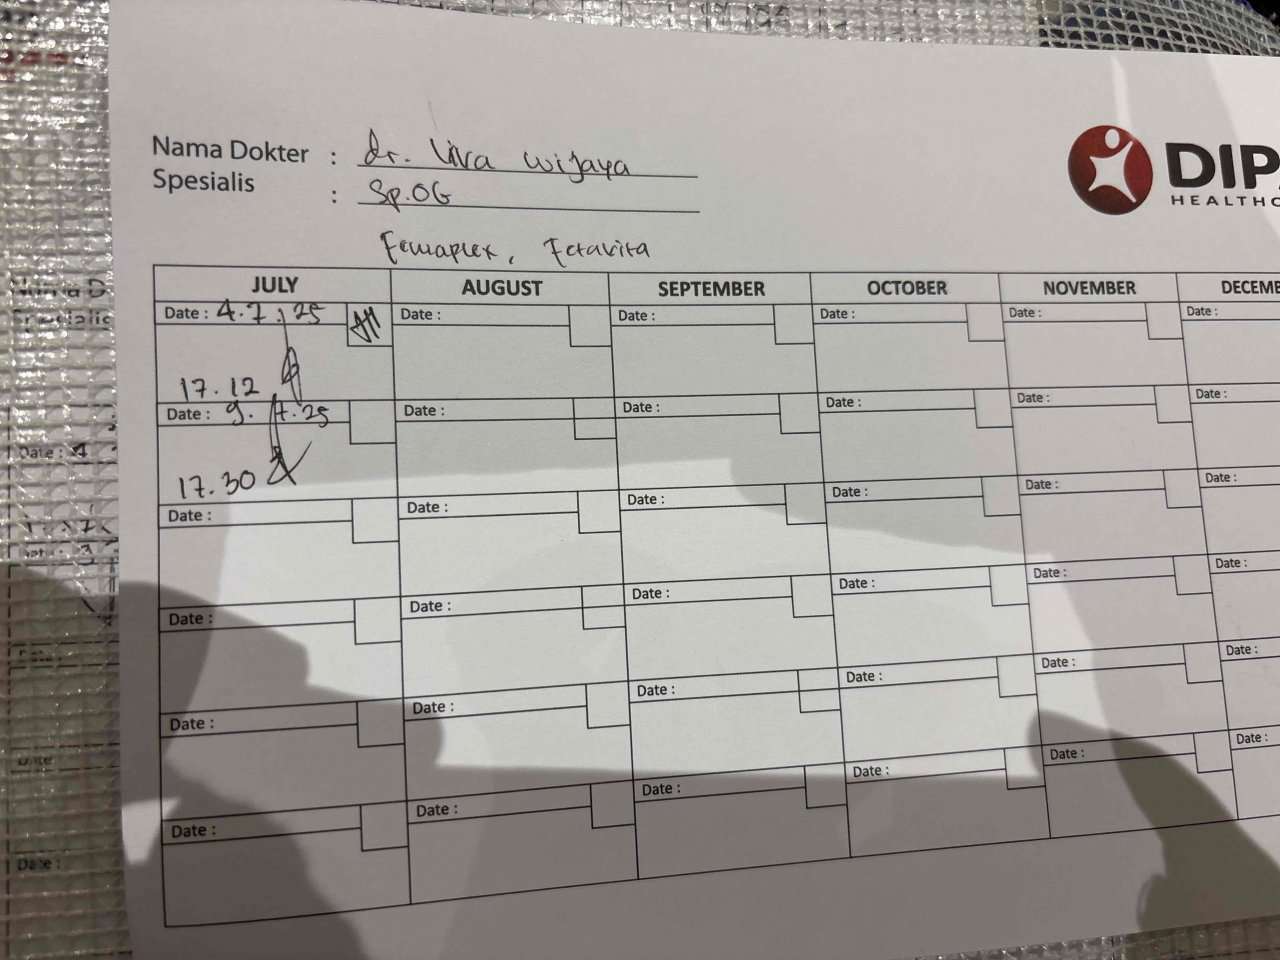 Nama Dokter : dr. Viva Wijaya
Spesialis : Sp.OG
DIPA
HEALTHC
Femaplex, Fetavita
JULY AUGUST SEPTEMBER OCTOBER NOVEMBER DECEME
Date : 4.7.25 Date : Date : Date : Date : Date :
17.12
Date : 9.7.25 Date : Date : Date : Date : Date :
17.30
Date : Date : Date : Date : Date : Date :
Date : Date : Date : Date : Date : Date :
Date : Date : Date : Date : Date : Date :
Date : Date : Date : Date : Date : Date :